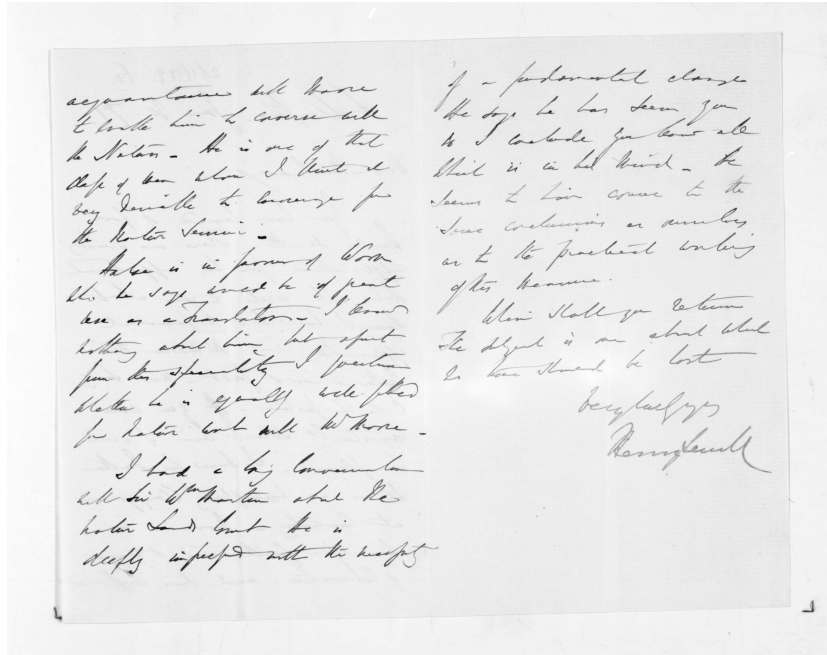 acquaintance with Moore
to enable him to converse with
the Natives - He is one of that
class of men whom I think it
very desirable to encourage for
the Native Service -
Halse is in favour of Worm
who he says would be of great
use as a Translator - I know
nothing about him, but apart
from this speciality I question
whether he is equally well fitted
for Native work with Mr Moore -
I had a long Conversation
with Sir Wm Martin about the
Native Lands Court He is
deeply impressed with the necessity
of a fundamental change
He says he has seen you
so I conclude you know all
that is in his Mind - He
seems to have come to the
same conclusions as ourselves
as to the practical working
of this Measure.
When shall you return
The subject is one about which
no time should be lost
Very truly yrs
Henry Sewell